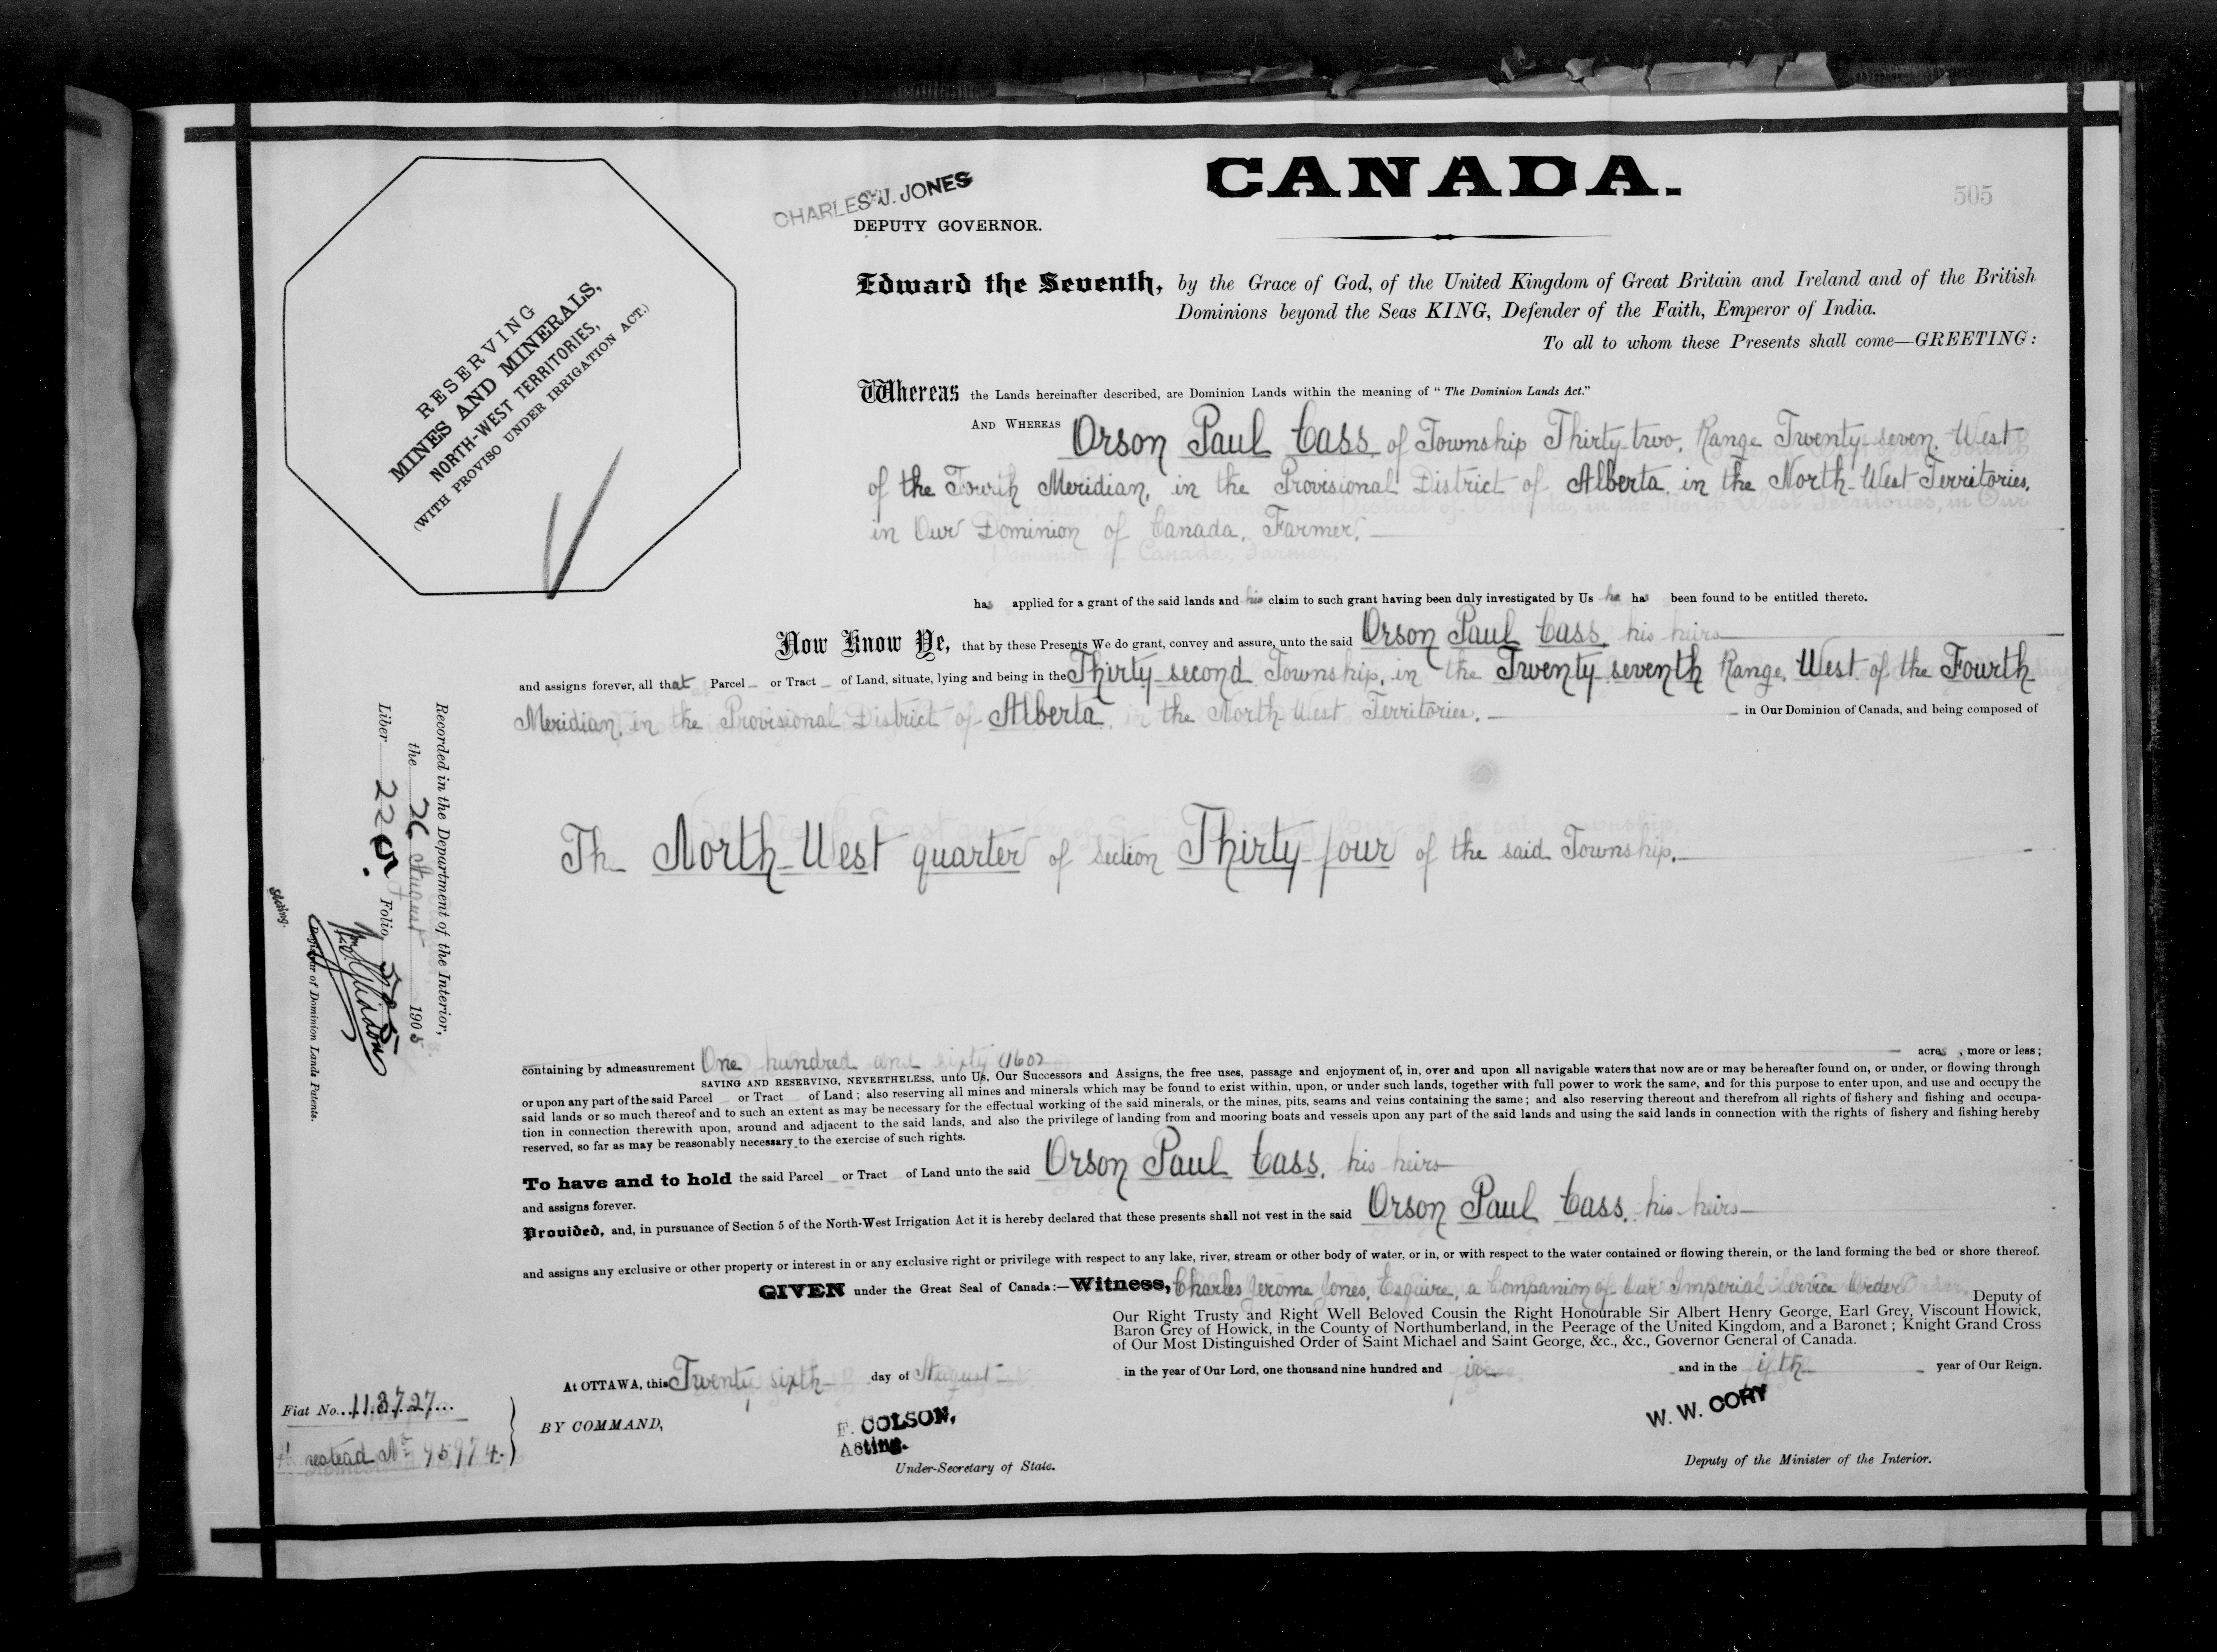 CANADA.
505
CHARLES J. JONES
DEPUTY GOVERNOR.
RESERVING
MINES AND MINERALS,
NORTH-WEST TERRITORIES,
(WITH PROVISO UNDER IRRIGATION ACT.)
Edward the Seventh, by the Grace of God, of the United Kingdom of Great Britain and Ireland and of the British
Dominions beyond the Seas KING, Defender of the Faith, Emperor of India.
To all to whom these Presents shall come—GREETING:
Whereas the Lands hereinafter described, are Dominion Lands within the meaning of "The Dominion Lands Act."
AND WHEREAS Orson Paul Cass, of Township Thirty-two, Range Twenty-seven, West
of the Fourth Meridian, in the Provisional District of Alberta, in the North-West Territories,
in Our Dominion of Canada, Farmer,
has applied for a grant of the said lands and his claim to such grant having been duly investigated by Us he has been found to be entitled thereto.
Now Know Ye, that by these Presents We do grant, convey and assure, unto the said Orson Paul Cass, his heirs
and assigns forever, all that Parcel or Tract of Land, situate, lying and being in the Thirty-second Township, in the Twenty-seventh Range, West of the Fourth
Meridian, in the Provisional District of Alberta, in the North-West Territories, in Our Dominion of Canada, and being composed of
The North-West quarter of Section Thirty-four of the said Township.
containing by admeasurement One hundred and sixty (160) acres, more or less;
SAVING AND RESERVING, NEVERTHELESS, unto Us, Our Successors and Assigns, the free uses, passage and enjoyment of, in, over and upon all navigable waters that now are or may be hereafter found on, or under, or flowing through
or upon any part of the said Parcel or Tract of Land; also reserving all mines and minerals which may be found to exist within, upon, or under such lands, together with full power to work the same, and for this purpose to enter upon, and use and occupy the
said lands or so much thereof and to such an extent as may be necessary for the effectual working of the said minerals, or the mines, pits, seams and veins containing the same; and also reserving thereout and therefrom all rights of fishery and fishing and occupa-
tion in connection therewith upon, around and adjacent to the said lands, and also the privilege of landing from and mooring boats and vessels upon any part of the said lands and using the said lands in connection with the rights of fishery and fishing hereby
reserved, so far as may be reasonably necessary to the exercise of such rights.
To have and to hold the said Parcel or Tract of Land unto the said Orson Paul Cass, his heirs
and assigns forever.
Provided, and, in pursuance of Section 5 of the North-West Irrigation Act it is hereby declared that these presents shall not vest in the said Orson Paul Cass, his heirs
and assigns any exclusive or other property or interest in or any exclusive right or privilege with respect to any lake, river, stream or other body of water, or in, or with respect to the water contained or flowing therein, or the land forming the bed or shore thereof.
GIVEN under the Great Seal of Canada:—Witness, Charles Jerome Jones, Esquire, a Companion of Our Imperial Service Order Deputy of
Our Right Trusty and Right Well Beloved Cousin the Right Honourable Sir Albert Henry George, Earl Grey, Viscount Howick,
Baron Grey of Howick, in the County of Northumberland, in the Peerage of the United Kingdom, and a Baronet; Knight Grand Cross
of Our Most Distinguished Order of Saint Michael and Saint George, &c., &c., Governor General of Canada.
At OTTAWA, this Twenty sixth day of August in the year of Our Lord, one thousand nine hundred and five and in the fifth year of Our Reign.
BY COMMAND,
F. COLSON,
Acting.
Under-Secretary of State.
W. W. CORY
Deputy of the Minister of the Interior.
Fiat No. 113727
Homestead No 95974
Recorded in the Department of the Interior,
the 26 August 1905
Liber 225 Folio
Registrar of Dominion Lands Patents.
Acting.